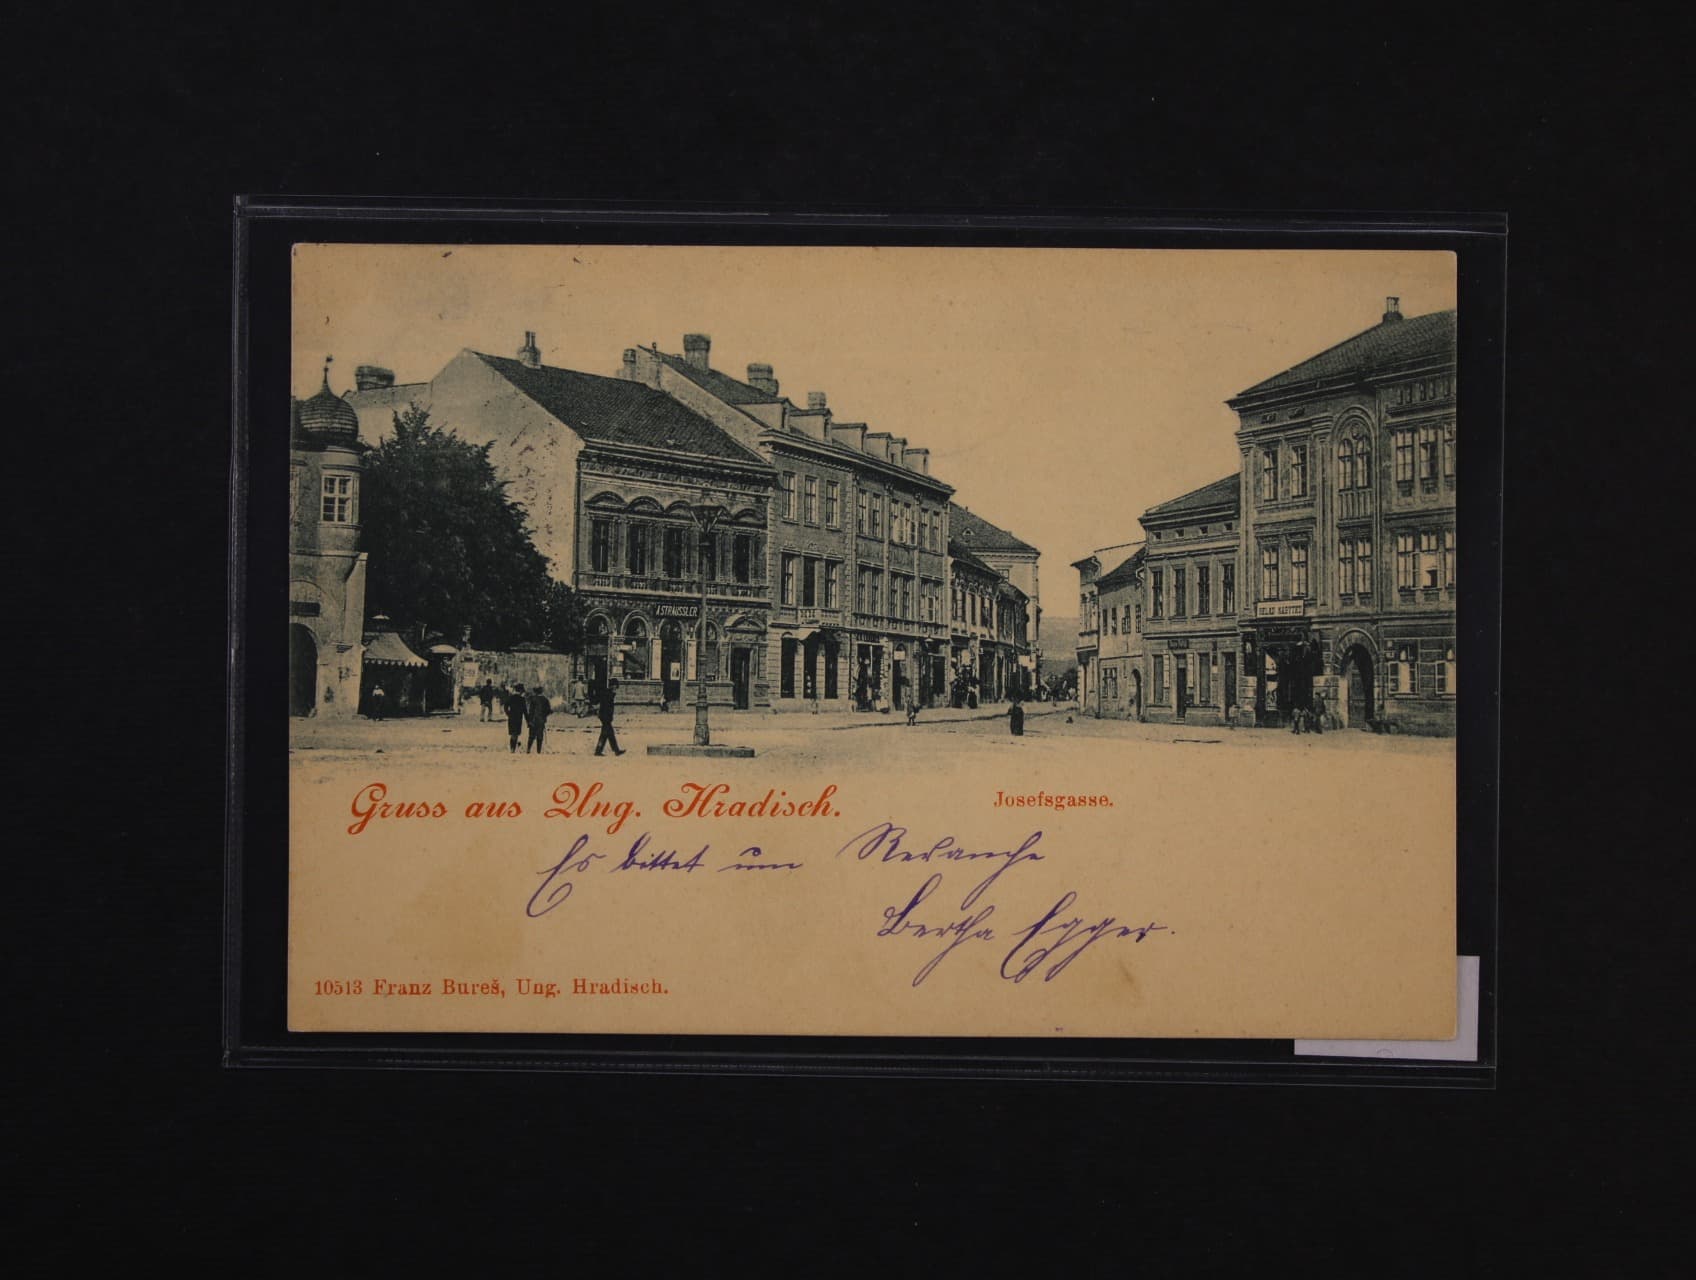 A. STRAUSSLER
Gruss aus Ung. Hradisch.
Josefsgasse.
Es bittet um Revanche
Bertha Egger.
10513 Franz Bureš, Ung. Hradisch.